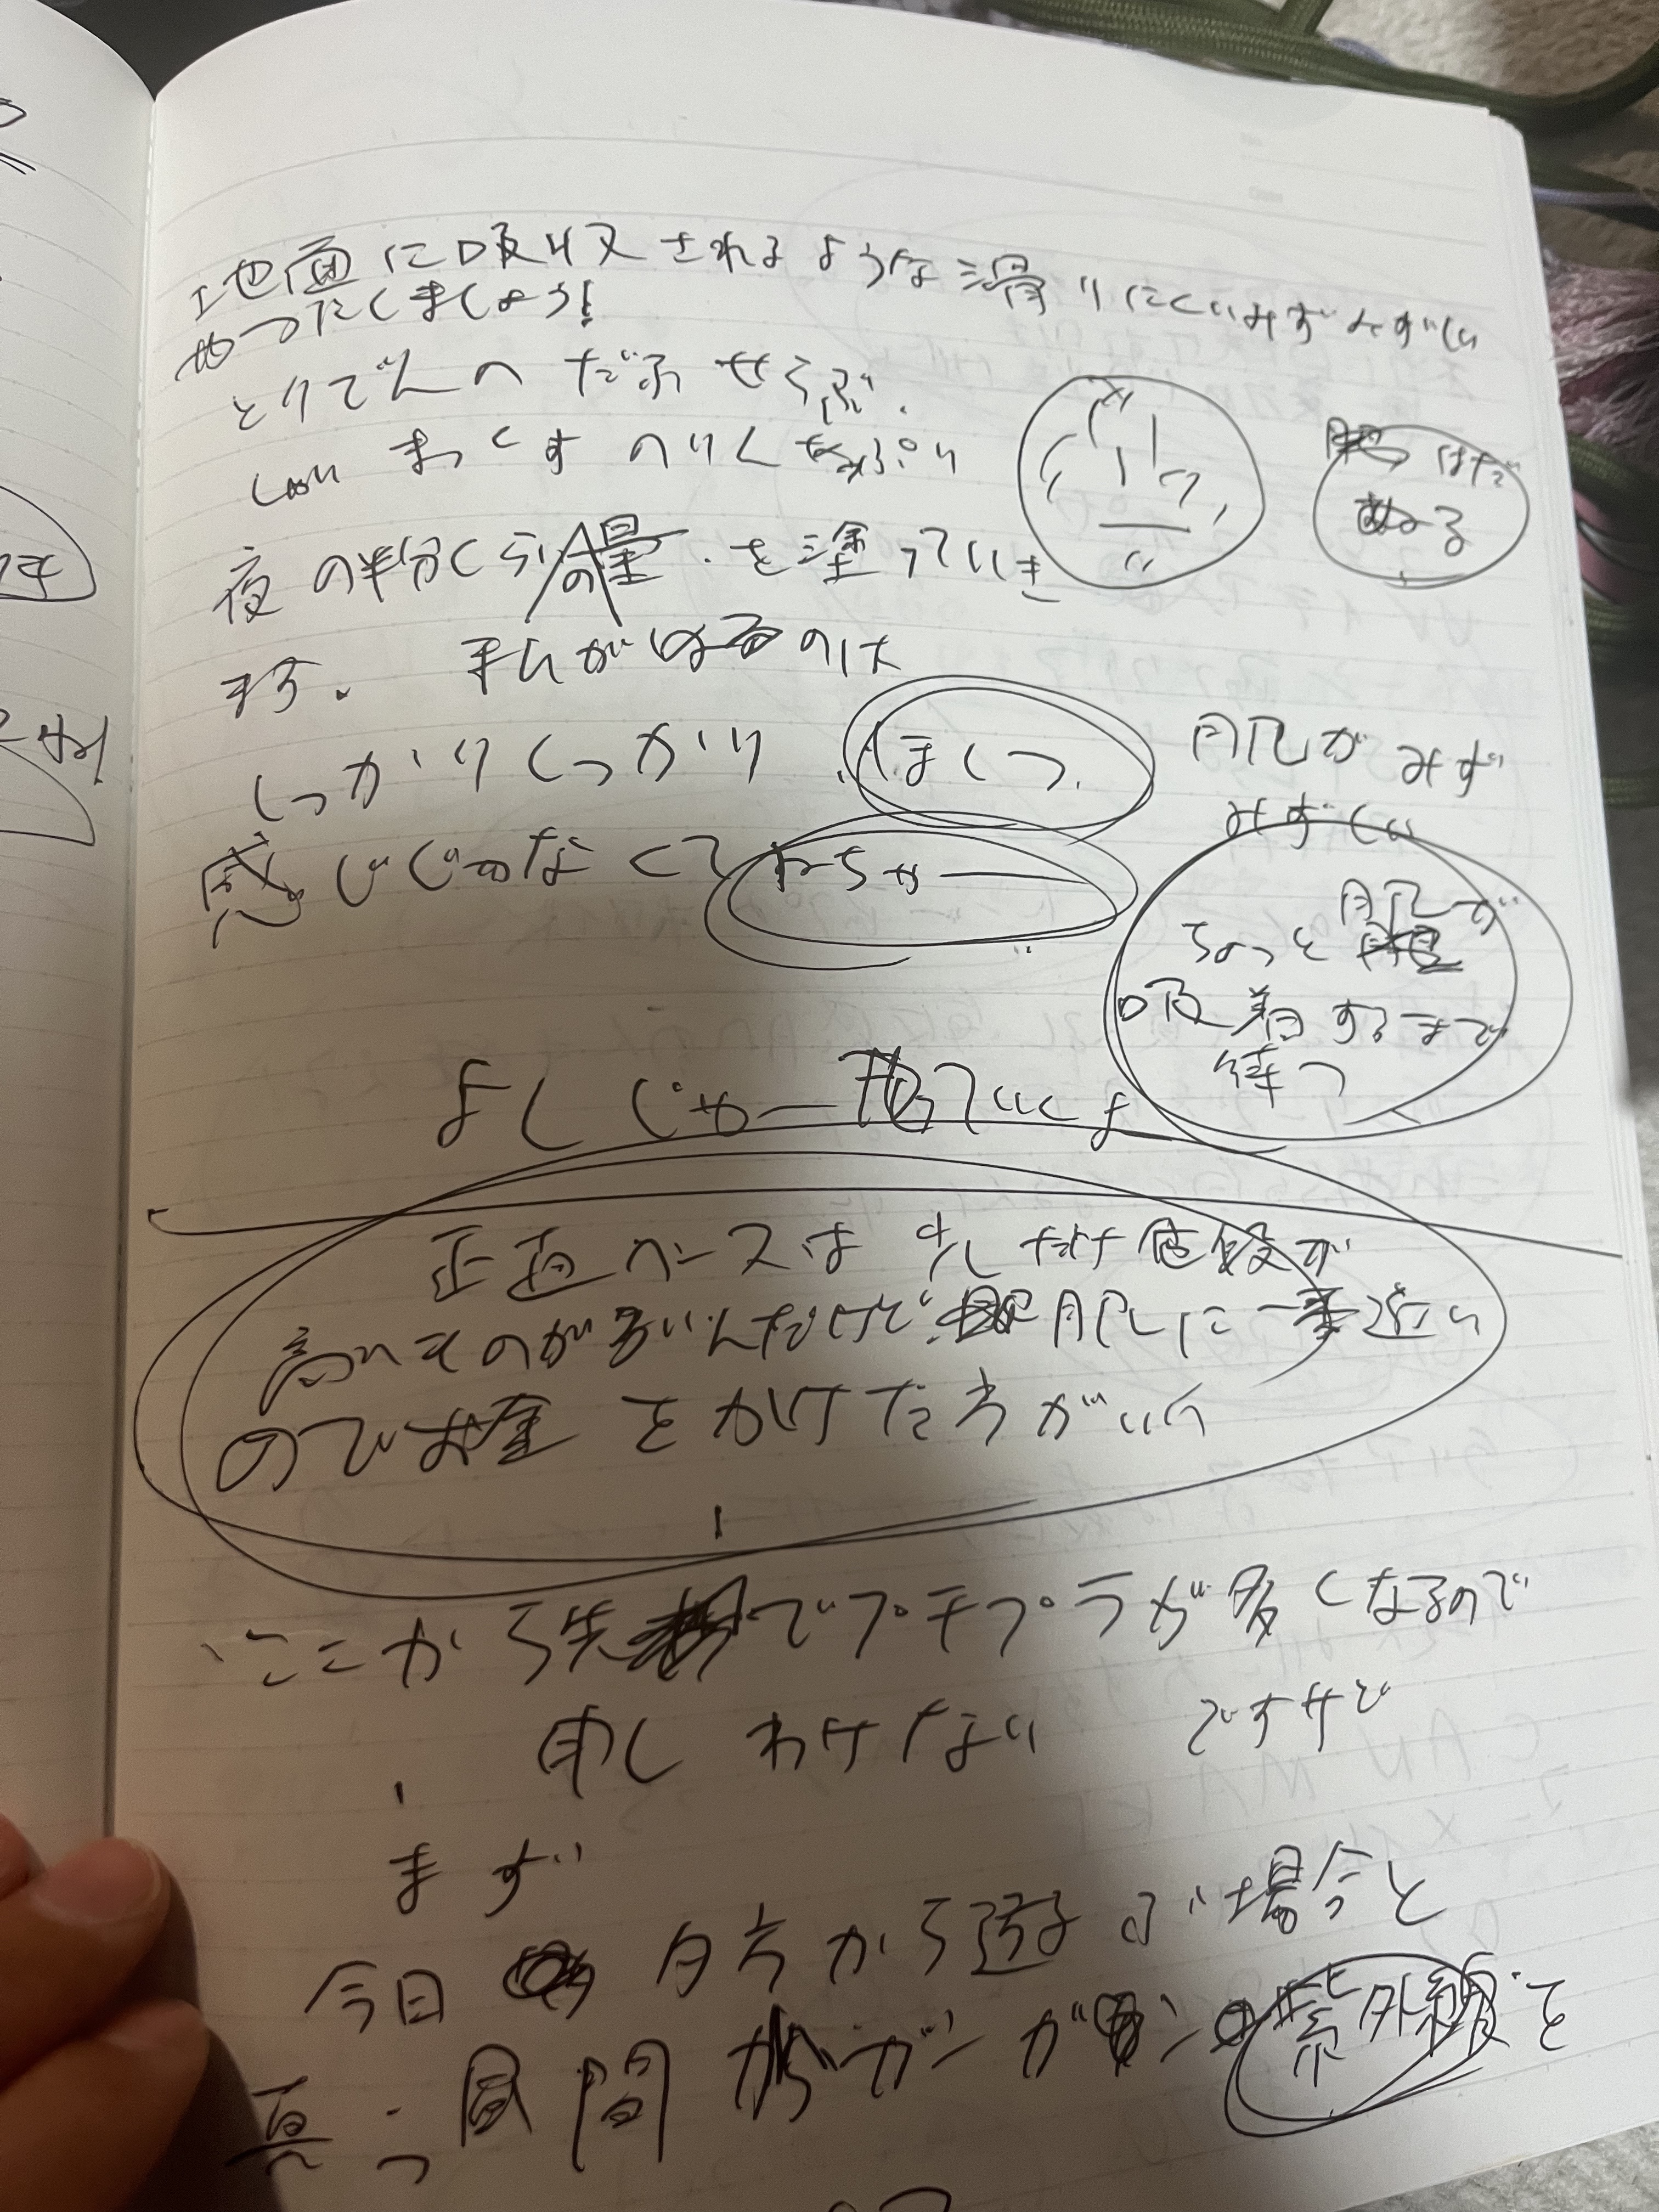 地面に吸収されるような滑りにくいみずみずしい
やつたしましょう!
とりでんの だぶせらぶ.
まっくす のりんもぷり
肌
ぬる
夜の半分くらいの量.を塗っていき
ます. 私がはるのは
しっかりしっかり ほくっ
感じじゃなくて ねちゃー
肌が みず
みずしい
肌が
ちょっと
吸着するまで
待つ
よし じゃー塗っていくよ
正直ベースは少しだけ値段が
高いものが多いんだけど 肌に一番近い
のでお金をかけた方がいい
ここから先でプチプラが多くなるので
申しわけない ですけど
まず
今日 夕方から遊ぶ場合と
真っ昼間 ガンガン 紫外線を